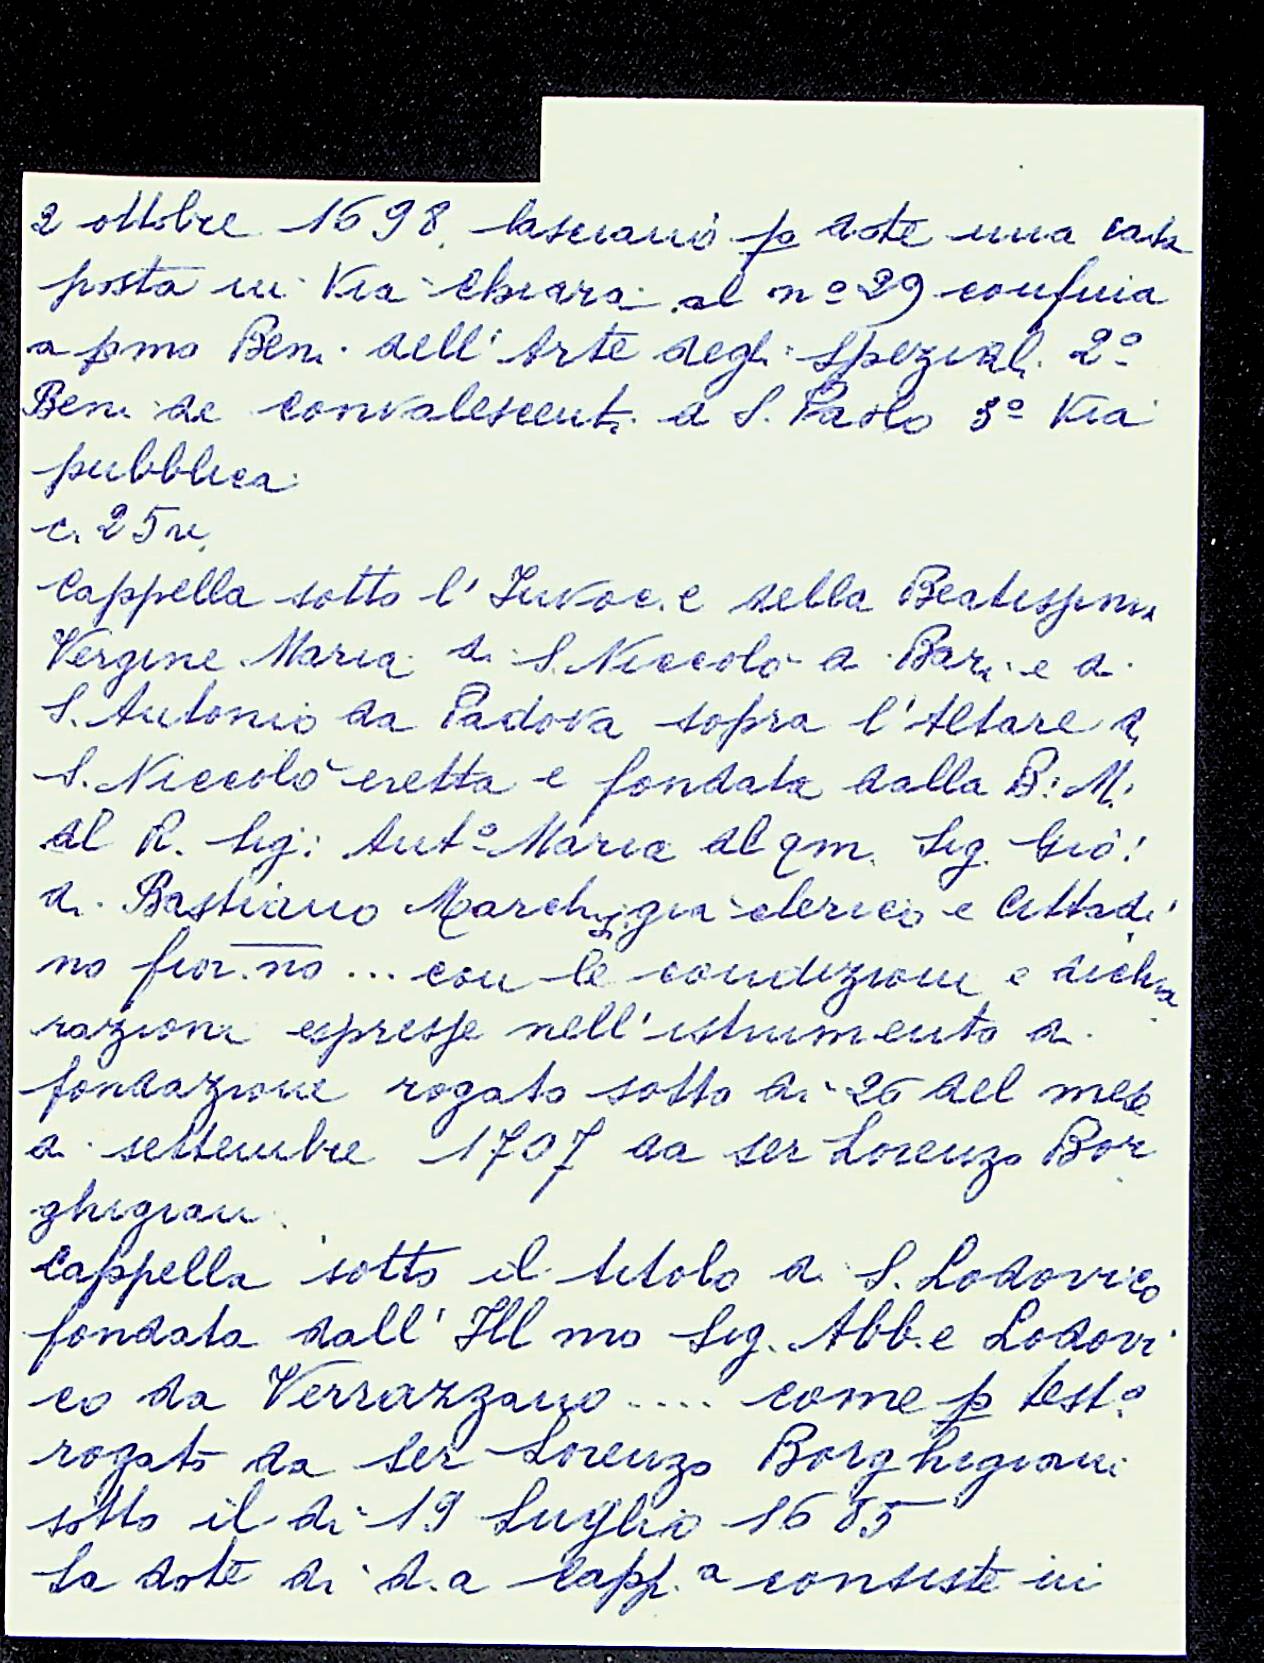 2 ottobre 1698. lasciano p dote una casa
posta in Via Chiara al nº 29 confina
a pmo Beni dell'Arte degli speziali 2º
Beni de convalescenti di S. Paolo 3º Via
pubblica
c. 25v.
Cappella sotto l'Invoc.e della Beatissima
Vergine Maria di S. Niccolò di Bari e di
S. Antonio da Padova sopra l'Altare di
S. Niccolò eretta e fondata dalla B: M:
del R. Sig: Antº Maria del qm. Sig. Giò:
di Bastiano Marchigia clerico e Cittadi
no fior.no ... con le condizioni e dichia
razioni espresse nell'istrumento di
fondazione rogato sotto di 26 del mese
di settembre 1707 da ser Lorenzo Bor
ghigiani
Cappella sotto il titolo di S. Lodovico
fondata dall' Ill mo Sig. Abb.e Lodovi
co da Verrazzano .... come p testº
rogato da ser Lorenzo Borghigiani
sotto il di 19 Luglio 1685
La dote di d.a Capp.a consiste in